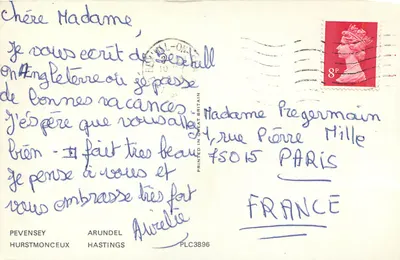 Chère Madame,
Je vous ecrit de Bexhill
en Angleterre où je passe
de bonnes vacances
J'espère que vous allez
bien - Il fait très beau
Je pense à vous et
vous embrasse très fort
Aurélie
PEVENSEY ARUNDEL
HURSTMONCEUX HASTINGS PLC3896
PRINTED IN GREAT BRITAIN
8P
Madame Pregermain
1, rue Pierre Mille
75015 PARIS
FRANCE